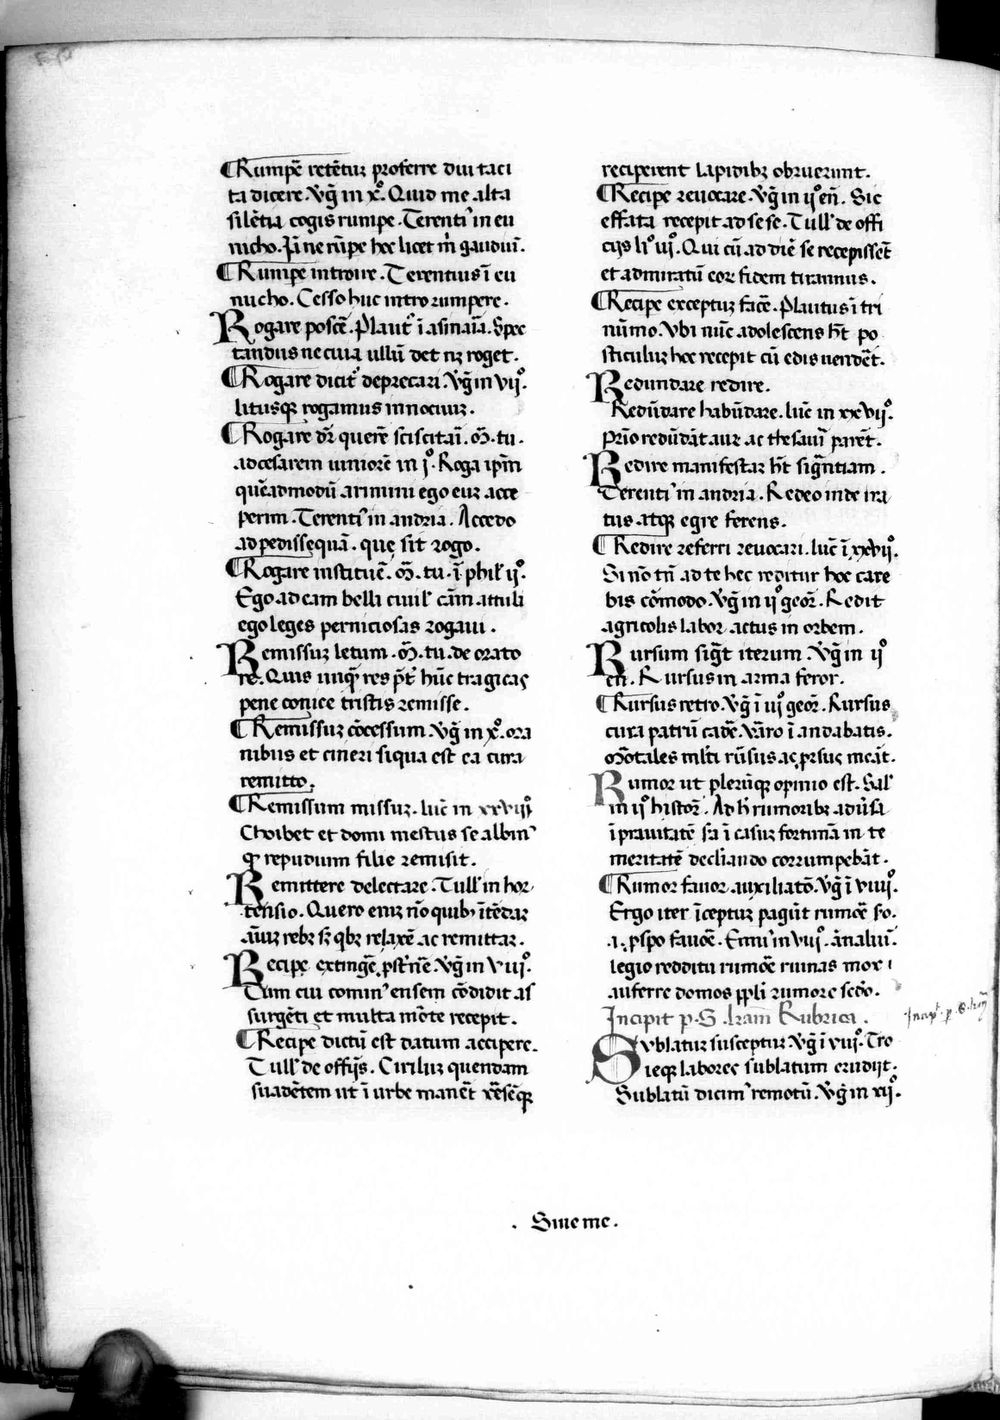 ¶Rumpe᷑ retētuꝫ proferre diu taci
ta dicere. Vg̃ in xͦ. Quid me alta
silētia cogis rumpe. Terentiꝰ in eu
nicho. rūpe hoc licet m̃ gaudiuĩ.
¶Rumpe introire. Terentius ĩ eu
nucho. Cesso huc intro rumpere.
Rogare poscē. Plautꝰ ĩ asinaĩa. Spec
tandus ne cuia ullū det nꝫ roget.
¶Rogare dicitꝰ deprecari. Vg̃ in vijͦ.
litusqꝫ rogamus innocuuꝫ.
¶Rogare dr̃ querē sciscitaĩ. M̃. tu.
ad cesarem iuniorē in jͦ. Roga ip̃m
quēadmodū arimini ego euꝫ acce
perim. Terentiꝰ in andria. Accedo
ad pedissequā. que sit rogo.
¶Rogare instituē. M̃. tu. ĩ phil' ijͦ.
Ego ad eam belli ciuil' cām attuli
ego leges perniciosas rogaui.
Remissuꝫ letum. M̃. tu. de orato
re. Quis unqꝫ res p̃t' hūc tragicas
pene comice tristis remisse.
¶Remissuꝫ cōcessum. Vg̃ in xͦ. ora
nibus et cineri siqua est ea cura
remitto.
¶Remissum missuꝫ. luc̄ in xxviijͦ
Choibet et domi mestus se albinꝰ
qꝫ repudium filie remisit.
Remittere delectare. Tull' in hor
tensio. Quero eniꝫ nō quibꝫ ītēdaꝫ
aīuꝫ rebꝫ sꝫ qbꝫ relaxē ac remittaꝫ.
Recipe extingē pst'nē. Vg̃ in viijͦ.
Tum cui cominꝰ ensem cōdidit as
surgēti et multa mōte recepit.
¶Recipe dictū est datum accipere.
Tull' de offijs. Cirilus quendam
suadētem ut ĩ urbe manēt xēsēqꝫ
recipient lapidibꝫ obruerunt.
¶Recipe reuocare. Vg̃ in ijͦ eñ. Sic
effata recepit ad sese. Tull' de offi
cijs liͦ iijͦ. Qui cū ad diē se recepissēt
et admiratū eoꝝ fidem tirannus.
¶Recipe exceptuꝫ facē. Plautus ĩ tri
nūmo. Vbi nūc adolescens h̄t po
sticuluꝫ hoc recepit cū edis uendēt.
Redundare redire.
Redūdare habūdare. luc̄ in xxvijͦ.
prīo redūdāt auꝫ ac thesauri parēt.
Redire manifestaꝫ h̄t sig̃ntiam.
Terentiꝰ in andria. Redeo inde ira
tus atqꝫ egre ferens.
¶Redire referri reuocari. luc̄ ĩ xxvijͦ.
Si nō tñ ad te hec reditur hoc care
bis cōmodo. Vg̃ in ijͦ georͦ. Redit
agricolis labor actus in orbem.
Rursum sig̃t iterum. Vg̃ in ijͦ
eñ. Rursus in arma feror.
¶Rursus retro. Vg̃ ĩ iijͦ georͦ. Rursus
cura patrū cadē. Varo ĩ andabatis.
Mortales ml̃ti rūsus ac prsus meāt.
Rumor ut plerūqꝫ opinio est. Sal'
in ijͦ historͦ. Ad h̄ rumoribꝫ adūsa
ĩ prauitatē sā ĩ casuꝫ fortunā in te
meritatē decliando corrumpebāt.
¶Rumor fauor auxiliatō. Vg̃ ĩ viiijͦ.
Ergo iter ĩceptuꝫ pagūt rumōe so.
.i. pspo fauōe. Enniꝰ in viijͦ. ānaliuĩ.
legio redditu rumōe ruinas mox
auferre domos ppli rumore sc̄do.
Incipit p. S. lr̄am Rubrica.
Sublatuꝫ susceptuꝫ Vg̃ ĩ viijͦ. Tro
ieqꝫ labores sublatum erudijt.
Sublatū dicimꝰ remotū. Vg̃ in xijͦ.
. Sine me.